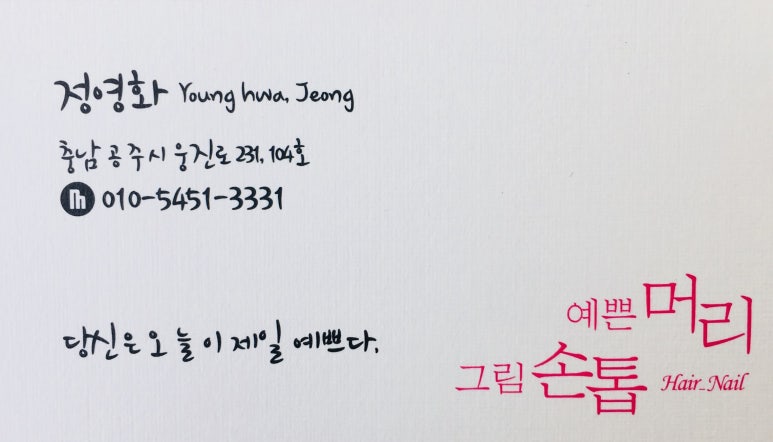 정영화 Young hwa, Jeong
충남 공주시 웅진로 231, 104호
m 010-5451-3331
당신은 오늘이 제일 예쁘다.
예쁜 머리
그림 손톱 Hair_Nail